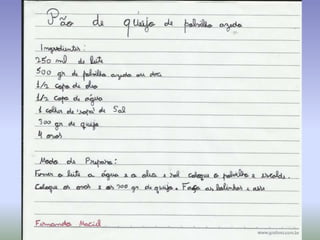 Pão de queijo de polvilho azedo
Ingredientes :
250 ml de leite
500 gr de polvilho azedo ou doce
1/2 copo de óleo
1/2 copo de água
1 colher de 'sopa' de Sal
300 gr de queijo
4 ovos
Modo de Preparo :
Ferver o leite a água e o óleo e sal coloque o polvilho e escalde.
Coloque os ovos e os 300 gr de queijo. Faça as bolinhas e asse
Fernanda Maciel
www.grafons.com.br